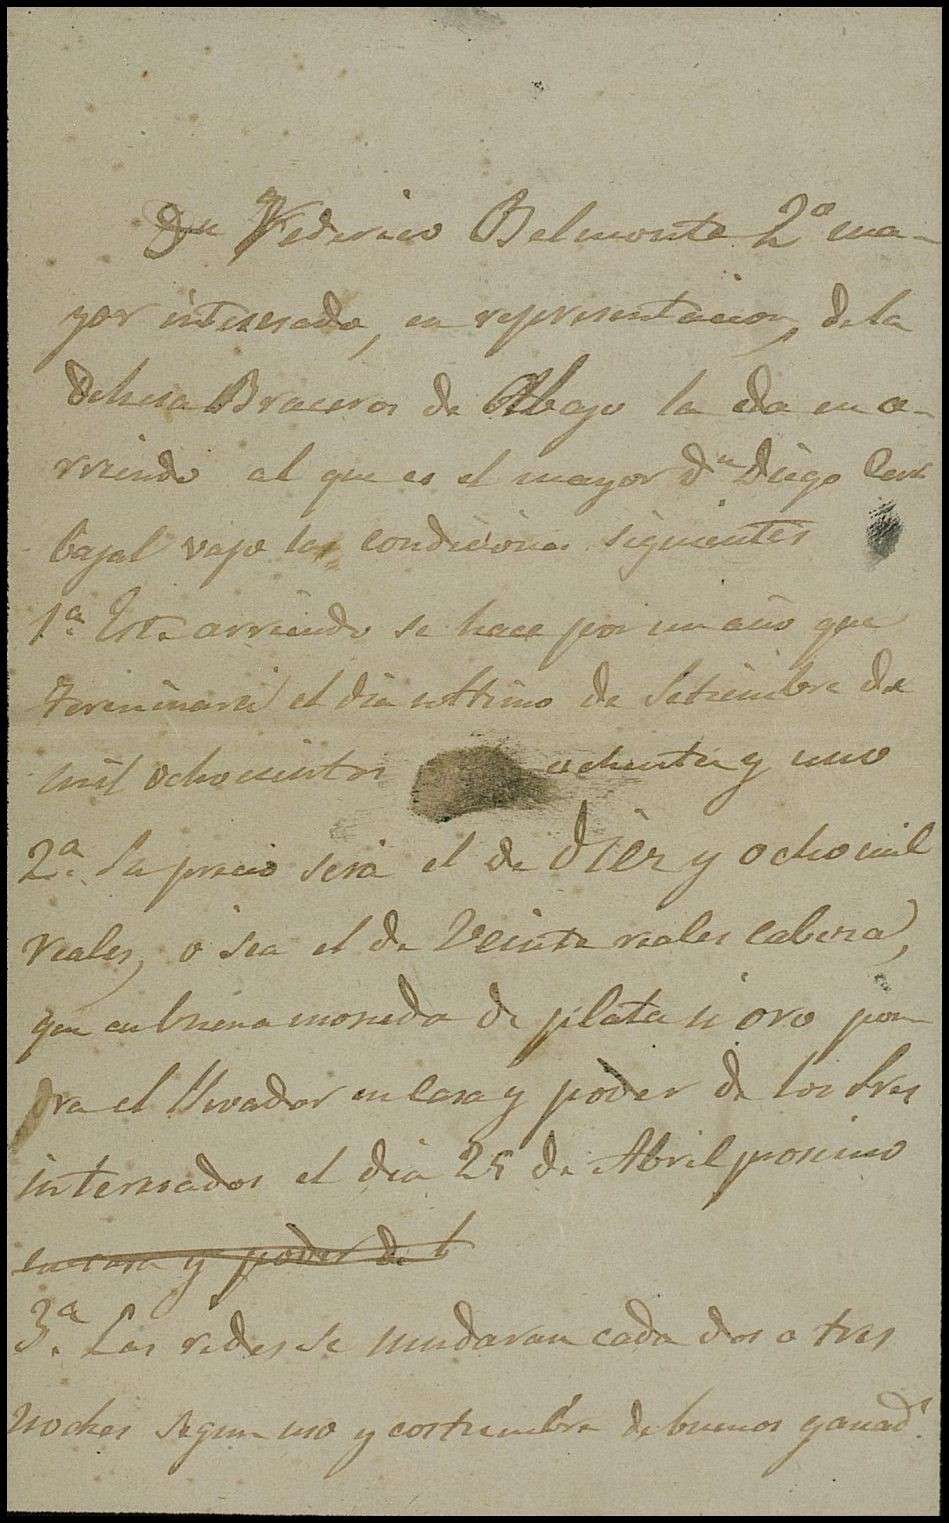 Dn Federico Belmonte 2º ma-
yor interesado, en representacion, de la
Dehesa Braceros de Abajo la da en a-
rriendo al que es el mayor Dn Diego Car
bajal vajo las condiciones siguientes
1ª Este arriendo se hace por un año que
terminará el dia ultimo de Setiembre de
mil ochocientos ochenta y uno
2ª Su precio será el de diez y ocho mil
reales, ó sea el de Veinte reales cabeza,
que en buena moneda de plata ú oro pon
dra el llevador en casa y poder de los Sres
interesados el dia 25 de Abril procsimo
en casa y poder de l
3ª Las redes se mudaran cada dos o tres
noches segun uso y costumbre de buenos ganads.